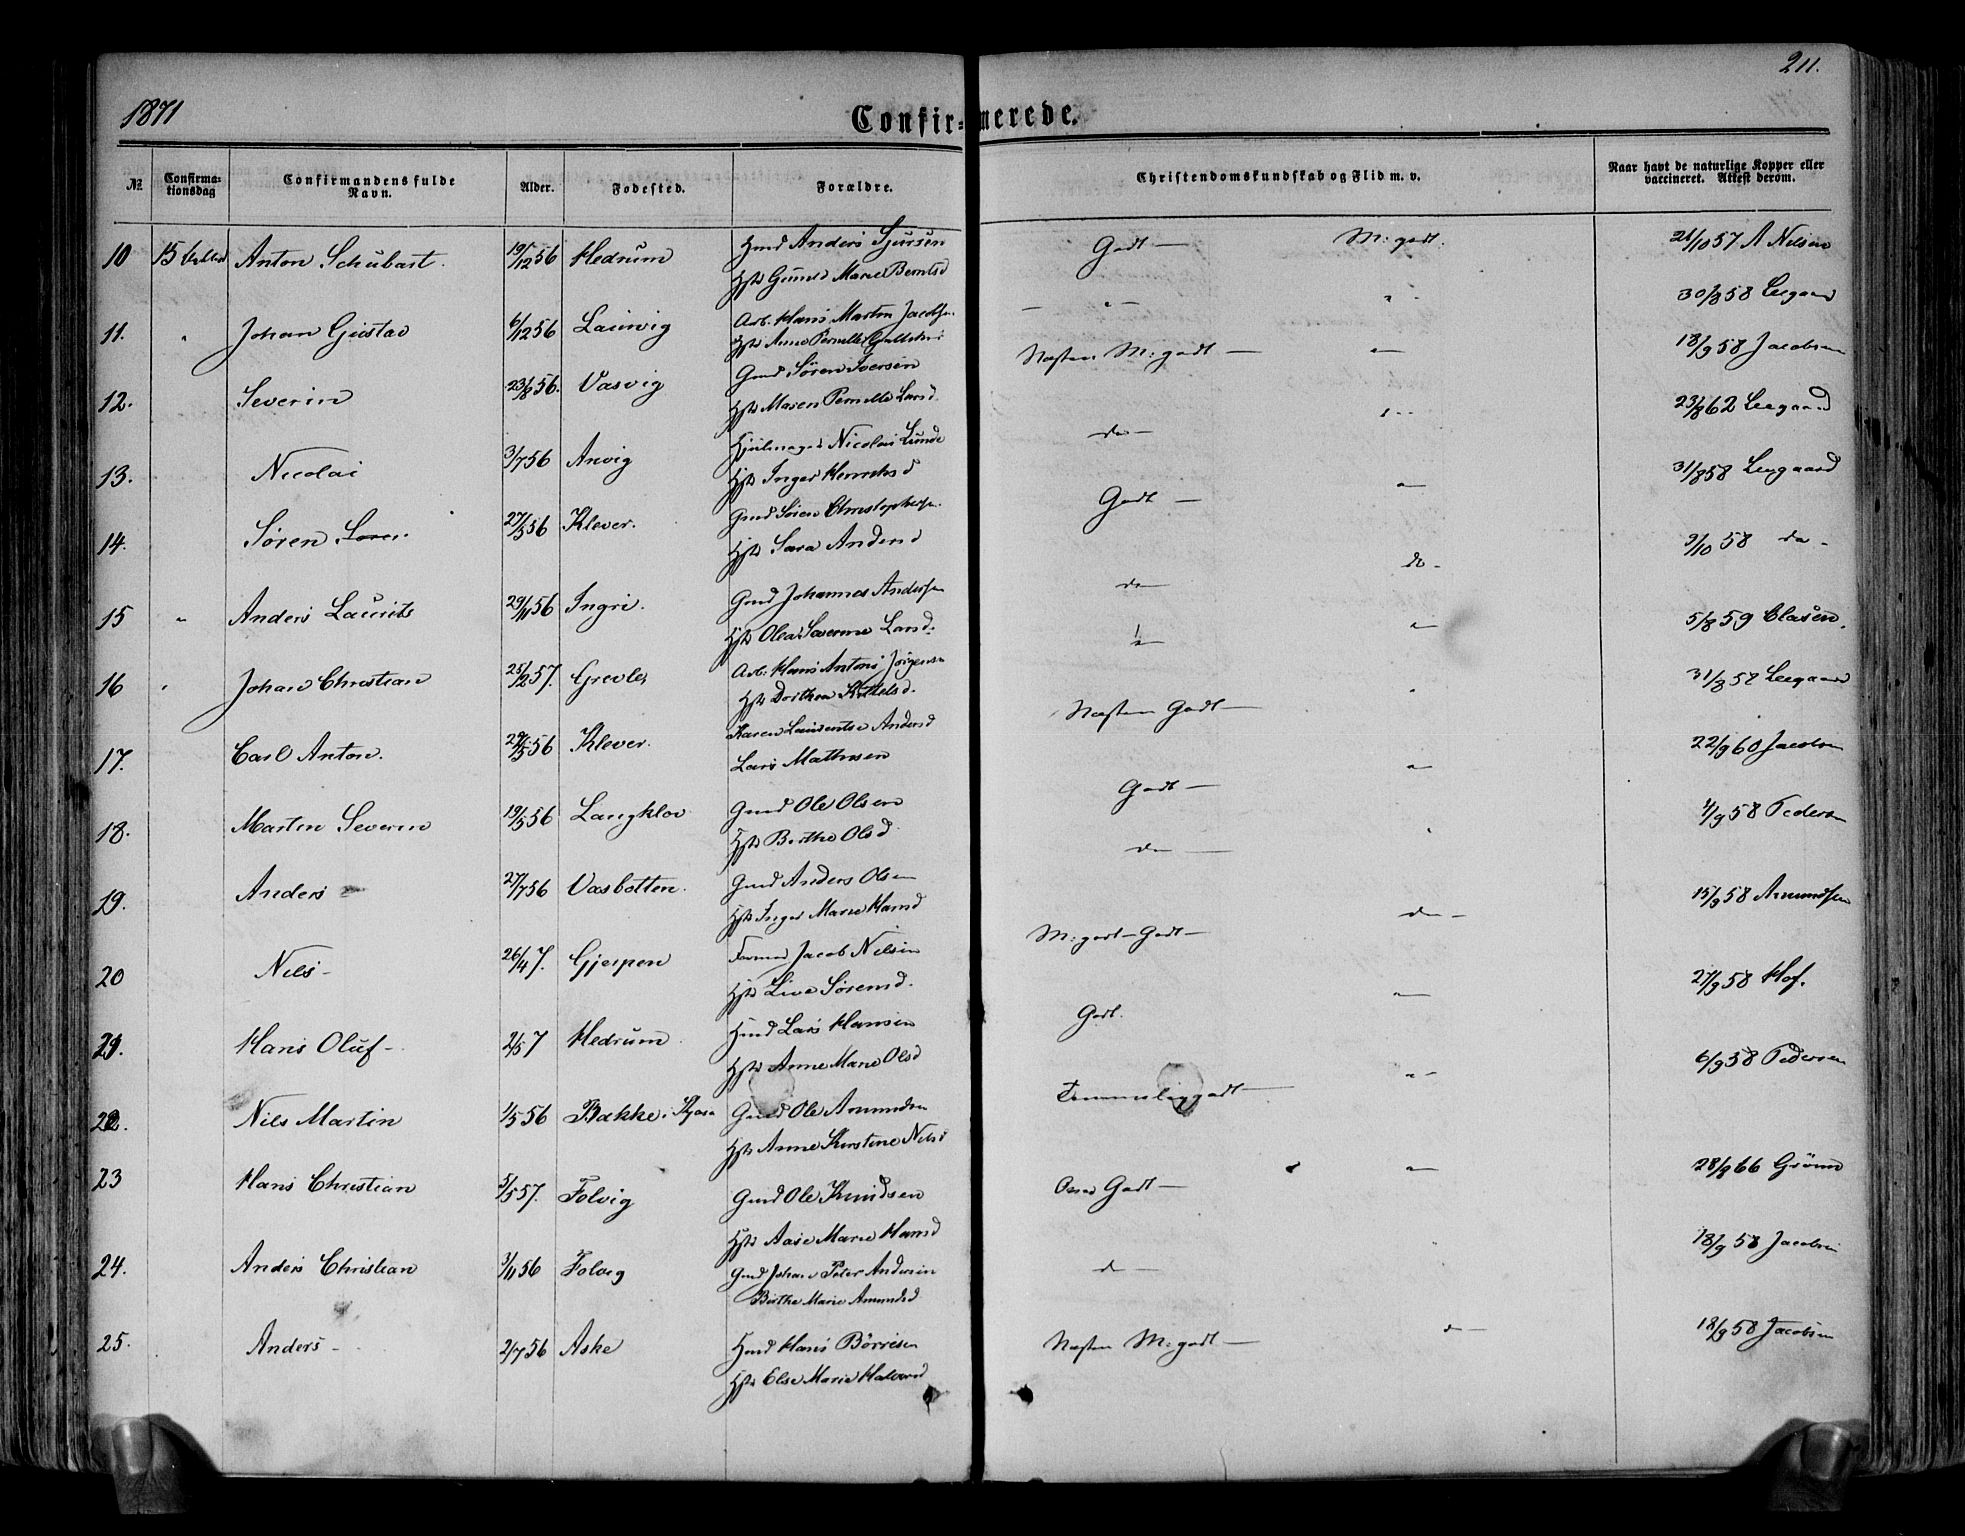 1871
211.
Confirmerede.
№
Confirmationsdag
Confirmandens fulde Navn.
Alder.
Fodested.
Forældre.
Christendomskundskab og Flid m. v.
Naar havt de naturlige Kopper eller vaccineret. Attest derom.
10 Anton Schubart. 19/12 56 Hedrum Anders Sjursen Godt — M: godt. 21/10 57 A Nilsen
Marie Berntsd
11. " Johan Gustav 6/12 56 Laurvig Arb. Hans Martin Jacobsen — " — " 30/8 58 Leegaard
Anne Pernille
12. Severin 23/8 56. Vasvig Gmd Søren Iversen Næsten M: godt — " 18/9 58 Jacobsen
Maren Pernille Larsd.
13. Nicolai 3/7 56 Anvig Hjulmager Nicolai Lunde do — 23/8 62 Leegaard
Inger Henriksd
14. Søren 27/5 56 Klever. Gmd Søren Christophersen Godt — " 31/8 58 Leegaard
Sara Andersd
15 " Anders Laurits 29/11 56 Ingri. Gmd Johannes Andersen do do. 9/10 58 do -
Olea Severine Larsd.
16 Johan Christian 25/2 57. Grevle Arb. Hans Anton Jørgensen " 5/8 59 Clasen.
Dorthea Kittelsd.
17. Carl Anton. 56 Klever. Karen Laurentse Andersd Næsten Godt — 31/8 58 Leegaard
Lars Mathisen
18. Martin Severin 19/5 56 Langklov Gmd Ole Olsen Godt — " 22/9 60 Jacobsen
Berthe Olsd
19. Anders 27/7 56 Vasbotten. Gmd Anders Olsen do — 4/9 58 Pedersen
Inger Marie Hansd
20 Nils - 26/4 7. Gjerpen Jacob Nilsen M: godt - Godt — do - 15/9 58 Amundsen
Live Sørensd.
21. Hans Oluf - 2/5 7 Hedrum Lars Hansen Godt. 27/9 58 Hof.
Anne Marie Olsd
22. Nils Martin 1/5 56 Bakke i Gmd Ole Amundsen Temmelig godt — " 6/9 58 Pedersen
Anne Kirstine Nilsd
23 Hans Christian 5/5 57. Folvig Gmd Ole Knudsen Godt — " 28/8 66 Grønn
Aase Marie Hansd
24. Anders Christian 3/11 56 Folvig Gmd Johan Peter Andersen d — 18/9 58 Jacobsen
Birthe Marie Amundsd
25. Anders - 2/7 56 Aske Hans Børresen Næsten M: godt — 18/9 58 Jacobsen
Else Marie Halvorsd